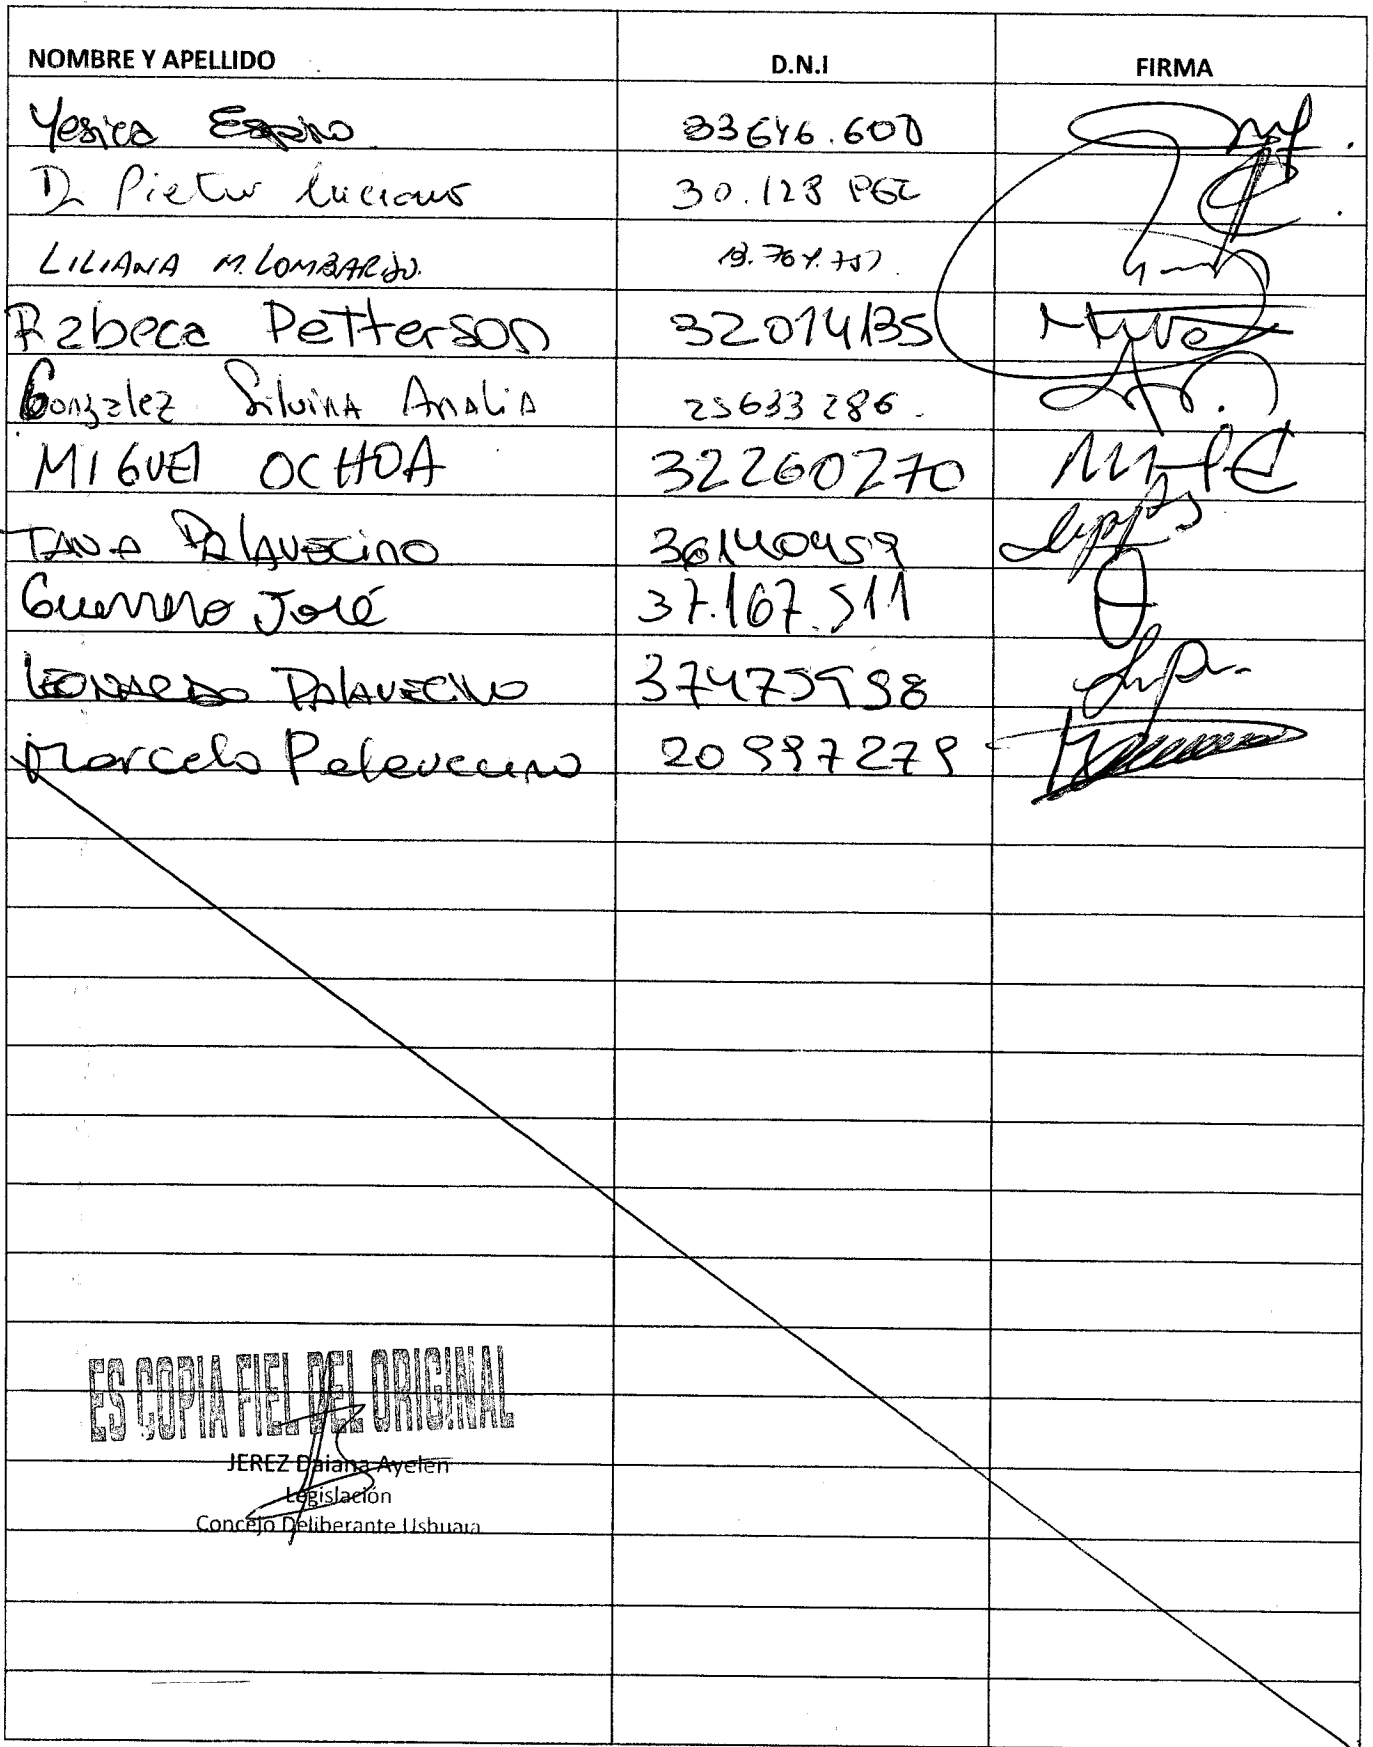 NOMBRE Y APELLIDO D.N.I FIRMA
Yesica 33646.600
Di Pietro Luciano 30.128
LILIANA M. LOMBARDO.
Rebeca Petterson 32014135
Gonzalez Silvina Analia 25633286.
MIGUEL OCHOA 32260270
PALAVECINO 36140459
Guerrero José 37.167.511
LEONARDO PALAVECINO
Marcelo Palavecino 20997279
ES COPIA FIEL DEL ORIGINAL
JEREZ Daiana Ayelen
Legislación
Concejo Deliberante Ushuaia